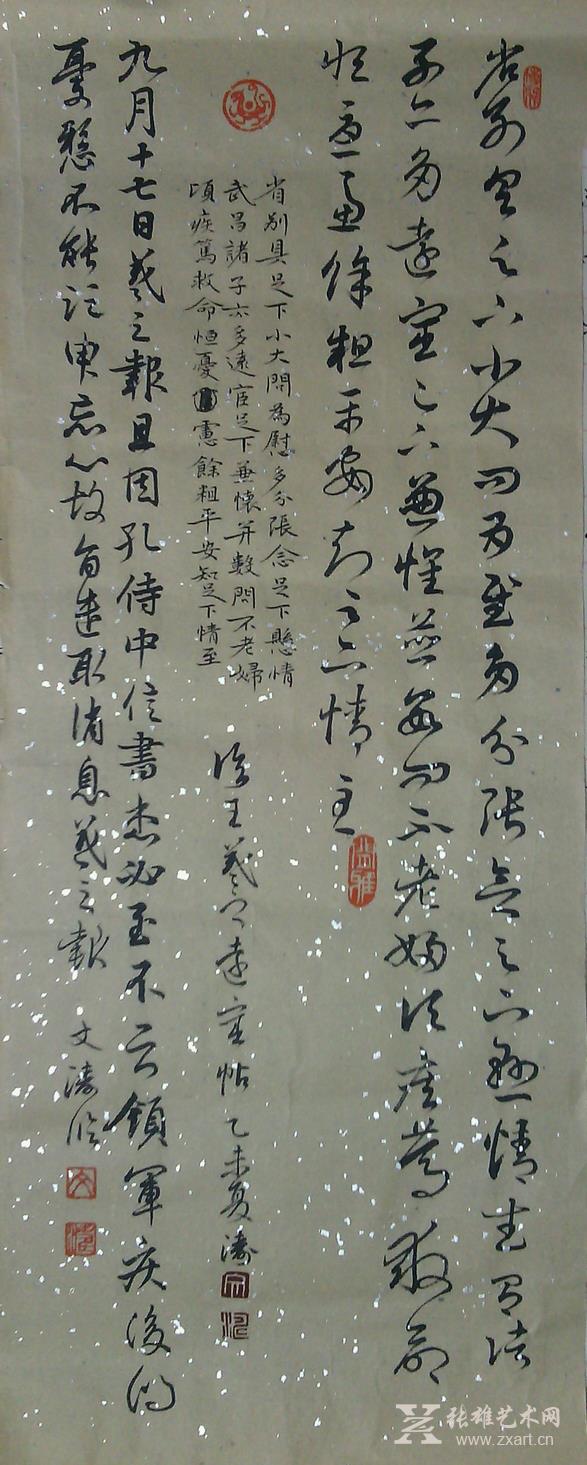 省別具足下小大問為慰多分張念足下懸情武昌諸
子亦多遠宦足下兼懷並數問不老婦頃疾篤救命
恒憂慮餘粗平安知足下情至
省別具足下小大問為慰多分張念足下懸情
武昌諸子亦多遠宦足下兼懷并數問不老婦
頃疾篤救命恒憂慮餘粗平安知足下情至
臨王羲之遠宦帖 乙未夏 濤
九月十七日羲之報且因孔侍中信書想必至不云領軍疾後問
憂懸不能須臾忘心故旨遣取消息羲之報 文濤臨
張雄艺术网
www.zxart.cn